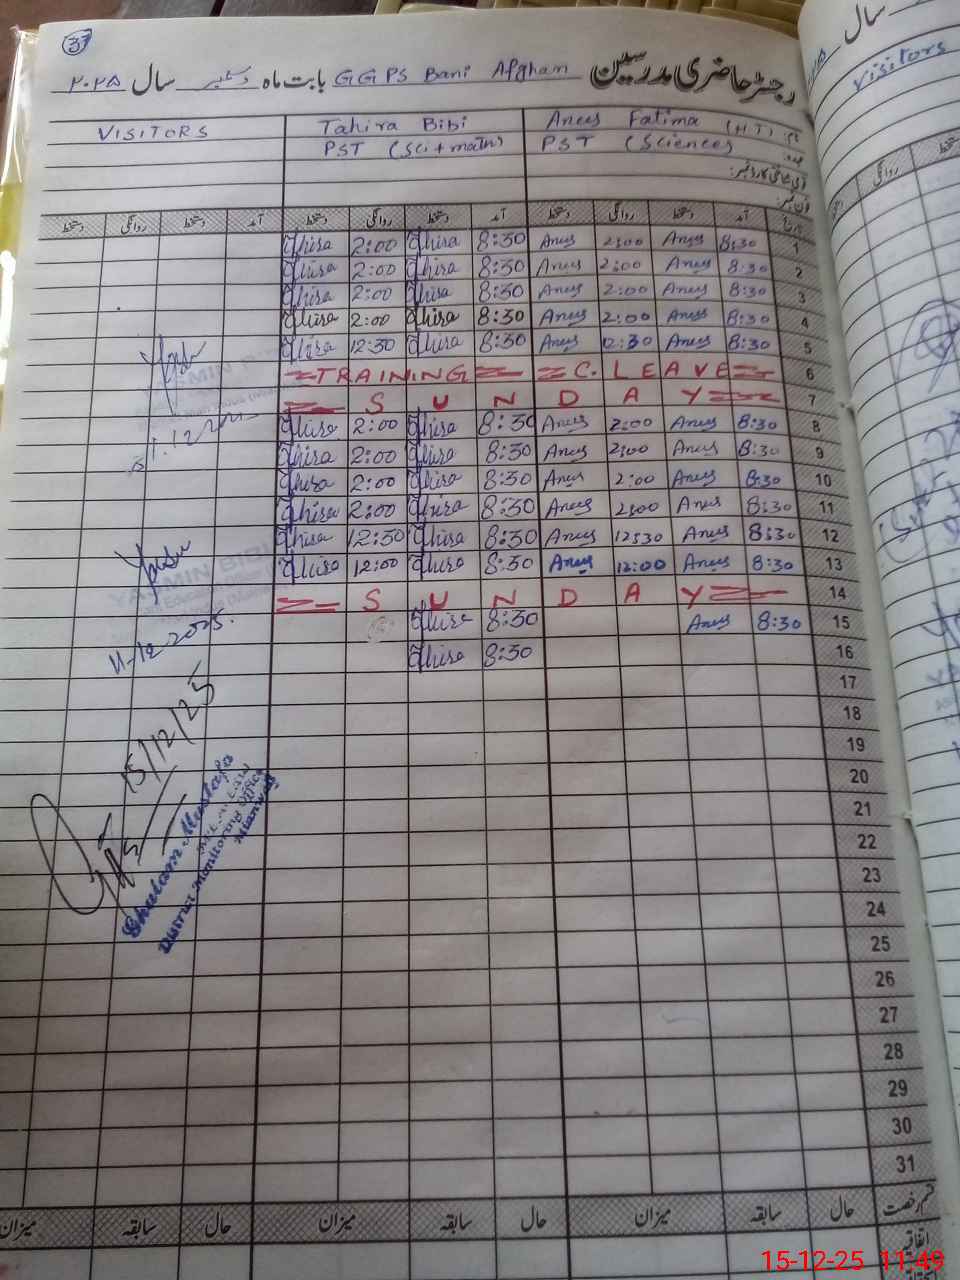 37
رجسٹر حاضری مدرسین GGPS Bani Afghan بابت ماہ دسمبر سال ۲۰۲۵
VISITORS Tahira Bibi Anees Fatima (HT) نام:
PST (Sci + math) PST (Science) عہدہ:
قومی شناختی کارڈ نمبر:
فون نمبر:
دستخط روانگی دستخط آمد دستخط روانگی دستخط آمد دستخط روانگی دستخط آمد تاریخ
Thira 2:00 Thira 8:30 Anees 2:00 Anees 8:30 1
Thira 2:00 Thira 8:30 Anees 2:00 Anees 8:30 2
Thira 2:00 Thira 8:30 Anees 2:00 Anees 8:30 3
Thira 2:00 Thira 8:30 Anees 2:00 Anees 8:30 4
Thira 12:30 Thira 8:30 Anees 12:30 Anees 8:30 5
TRAINING C. LEAVE 6
SUNDAY 7
Thira 2:00 Thira 8:30 Anees 2:00 Anees 8:30 8
Thira 2:00 Thira 8:30 Anees 2:00 Anees 8:30 9
Thira 2:00 Thira 8:30 Anees 2:00 Anees 8:30 10
Thira 2:00 Thira 8:30 Anees 2:00 Anees 8:30 11
Thira 12:30 Thira 8:30 Anees 12:30 Anees 8:30 12
Thira 12:00 Thira 8:30 Anees 12:00 Anees 8:30 13
SUNDAY 14
Thira 8:30 Anees 8:30 15
Thira 8:30 16
17
18
19
20
21
22
23
24
25
26
27
28
29
30
31
YASMIN BIBI
11-12-2025.
15/12/25
Ghulam Mustafa
District Monitoring Officer
Mianwali
قسم رخصت
میزان سابقہ حال میزان سابقہ حال میزان سابقہ حال
اتفاقیہ
سال
Visitors
روانگی
15-12-25 11:49